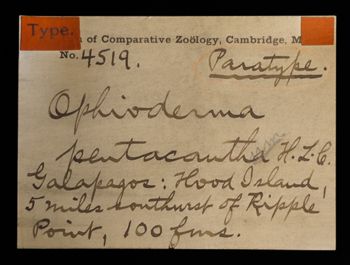 Type.
m of Comparative Zoölogy, Cambridge, M
No. 4519. Paratype.
Ophioderma
pentacantha H.L.C.
Galapagos: Hood Island,
5 miles southwest of Ripple
Point, 100 fms.